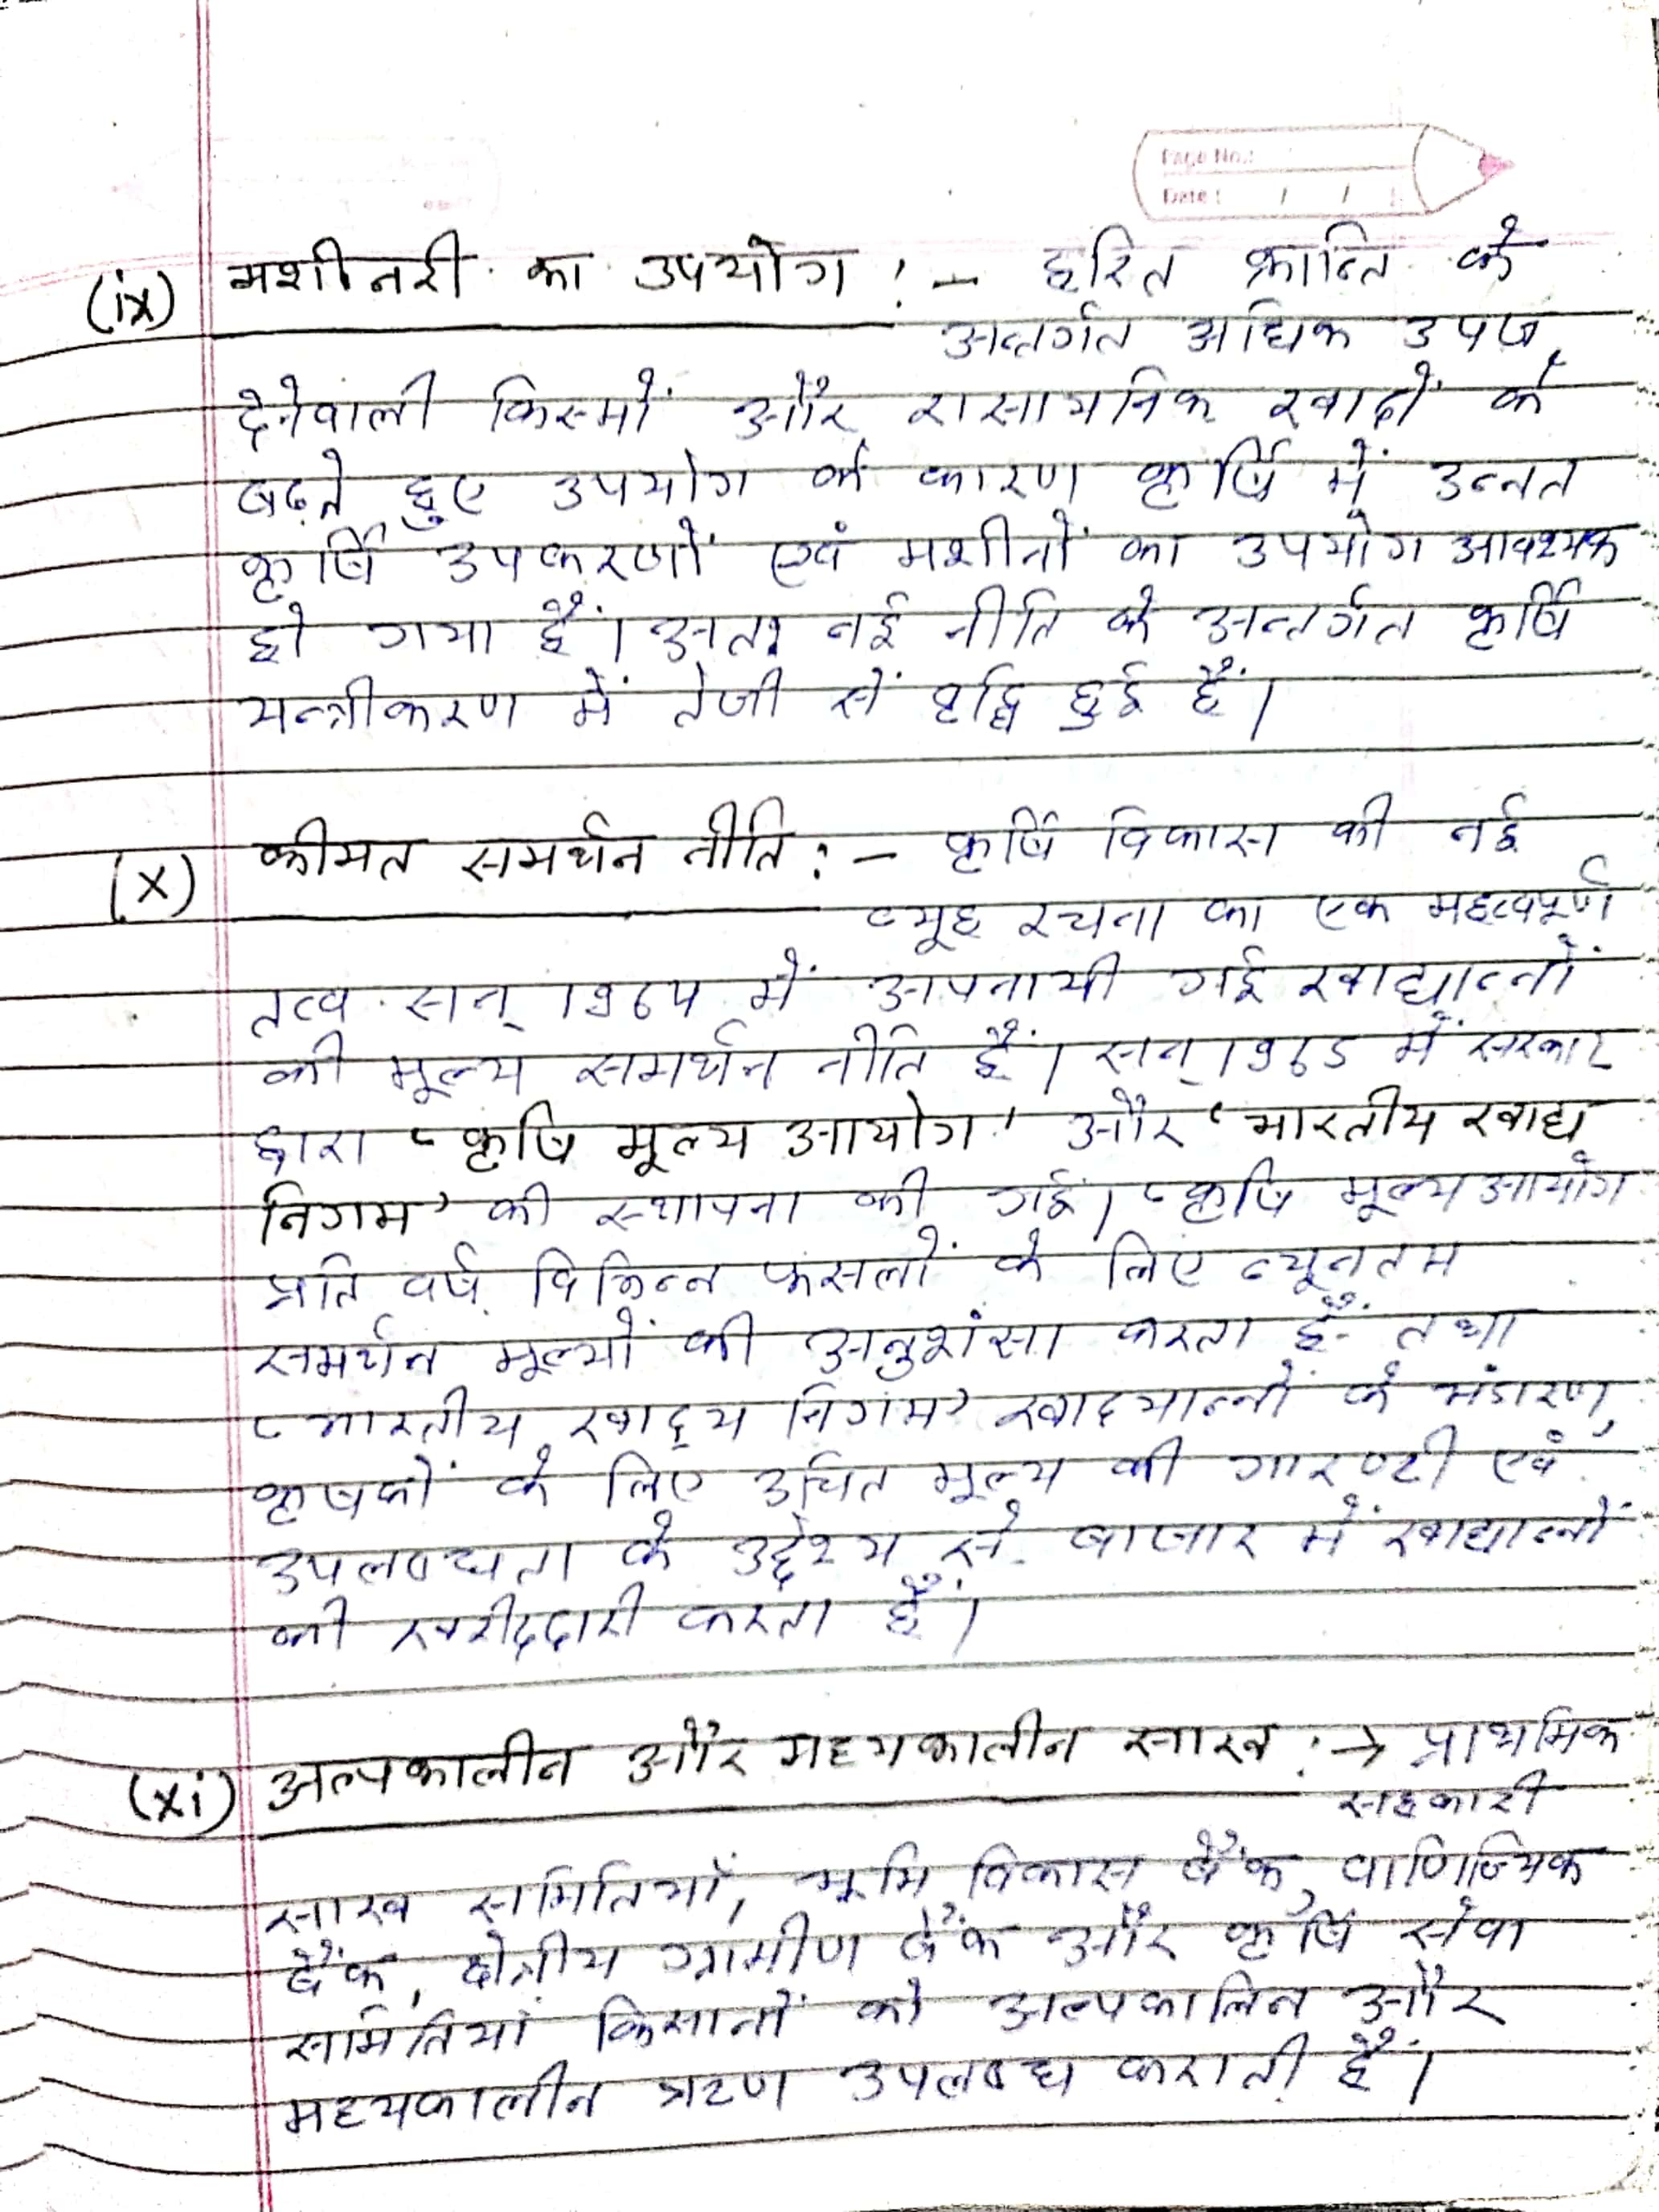 Page No.:
Date : / /
(ix) मशीनरी का उपयोग :- हरित क्रान्ति के
अन्तर्गत अधिक उपज
देनेवाली किस्मों और रासायनिक खादों के
बढ़ते हुए उपयोग के कारण कृर्षि में उन्नत
कृर्षि उपकरणों एवं मशीनों का उपयोग आवश्यक
हो गया हैं। अतः नई नीति के अन्तर्गत कृर्षि
यन्त्रीकरण में तेजी सें वृद्धि हुई हैं।
(x) कीमत समर्थन नीति :- कृर्षि विकास की नई
व्यूह रचना का एक महत्वपूर्ण
तत्व सन् 1964 में अपनायी गई खाद्यान्नों
की मूल्य समर्थन नीति हैं। सन् 1965 में सरकार
द्वारा 'कृषि मूल्य आयोग' और 'भारतीय खाद्य
निगम' की स्थापना की गई। 'कृषि मूल्य आयोग
प्रति वर्ष विभिन्न फसलों के लिए न्यूनतम
समर्थन मूल्यों की अनुशंसा करता हैं तथा
'भारतीय खाद्य निगम' खाद्यान्नों के भंडारण,
कृषकों के लिए उचित मूल्य की गारण्टी एवं
उपलब्धता के उद्देश्य से बाजार में खाद्यान्नों
की खरीददारी करता हैं।
(xi) अल्पकालीन और मध्यकालीन साख :→ प्राथमिक
सहकारी
साख समितियाँ, भूमि विकास बैंक, वाणिज्यिक
बैंक, क्षेत्रीय ग्रामीण बैंक और कृर्षि सेवा
समितियां किसानों को अल्पकालिन और
मध्यकालीन ऋण उपलब्ध कराती हैं।